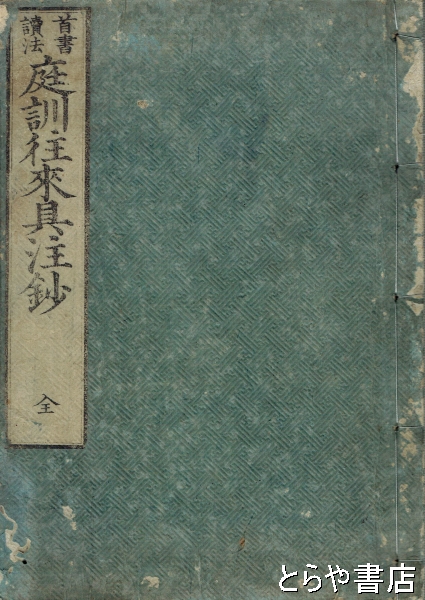 首書
讀法
庭訓往來具注鈔
全
とらや書店